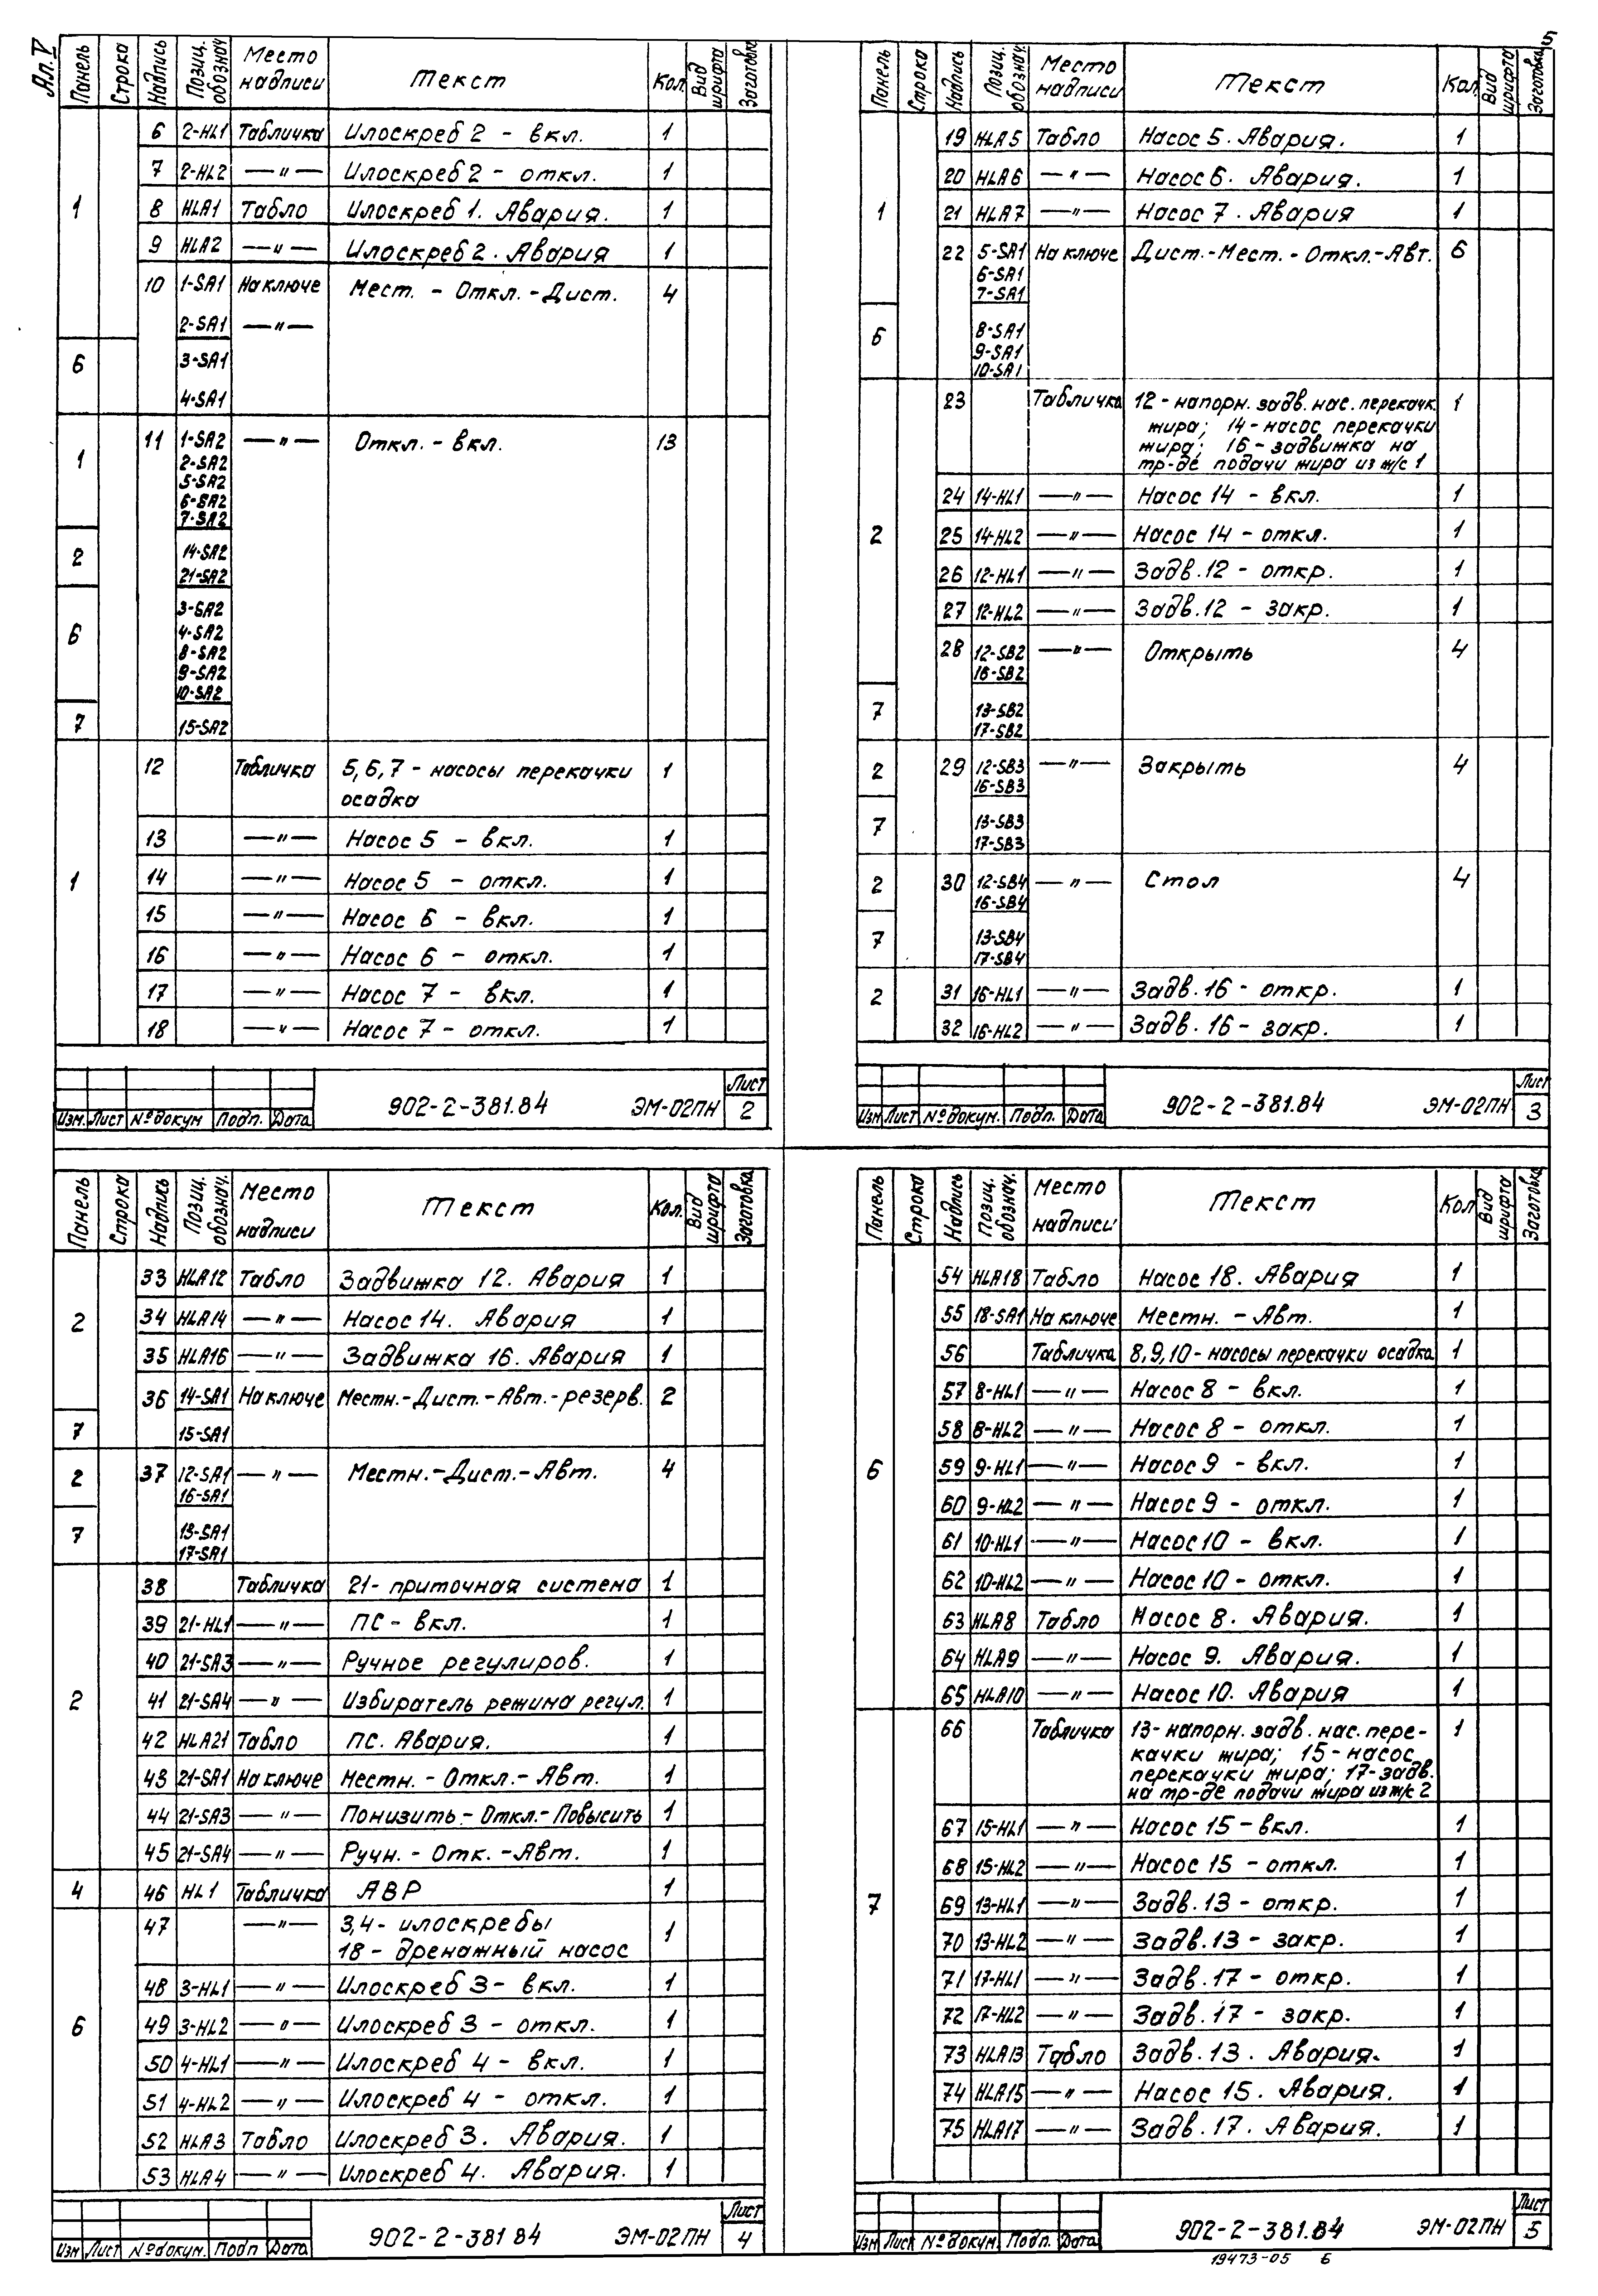 Ал. V
5
Панель Строка Надпись Позиц. обознач. Место надписи Текст Кол. Вид шрифта Заготовка
1 6 2-HL1 Табличка Илоскреб 2 - вкл. 1
7 2-HL2 —"— Илоскреб 2 - откл. 1
8 HLA1 Табло Илоскреб 1. Авария. 1
9 HLA2 —"— Илоскреб 2. Авария 1
10 1-SA1 На ключе Мест. - Откл. - Дист. 4
2-SA1 —"—
6 3-SA1
4-SA1
1 11 1-SA2 —"— Откл. - вкл. 13
2-SA2
5-SA2
6-SA2
7-SA2
2 14-SA2
21-SA2
6 3-SA2
4-SA2
8-SA2
9-SA2
10-SA2
7 15-SA2
1 12 Табличка 5,6,7 - насосы перекачки 1
осадка
13 —"— Насос 5 - вкл. 1
14 —"— Насос 5 - откл. 1
15 —"— Насос 6 - вкл. 1
16 —"— Насос 6 - откл. 1
17 —"— Насос 7 - вкл. 1
18 —"— Насос 7 - откл. 1
Изм. Лист № докум Подп. Дата 902-2-381.84 ЭМ-02ПН Лист 2
Панель Строка Надпись Позиц. обознач. Место надписи Текст Кол. Вид шрифта Заготовка
1 19 HLA5 Табло Насос 5. Авария. 1
20 HLA6 —"— Насос 6. Авария. 1
21 HLA7 —"— Насос 7. Авария 1
22 5-SA1 На ключе Дист.-Мест.-Откл.-Авт. 6
6-SA1
7-SA1
6 8-SA1
9-SA1
10-SA1
2 23 Табличка 12-напорн. задв. нас. перекачк. 1
жира; 14-насос перекачки
жира; 16-задвижка на
тр-де подачи жира из ж/с 1
24 14-HL1 —"— Насос 14 - вкл. 1
25 14-HL2 —"— Насос 14 - откл. 1
26 12-HL1 —"— Задв. 12 - откр. 1
27 12-HL2 —"— Задв. 12 - закр. 1
28 12-SB2 —"— Открыть 4
16-SB2
7 13-SB2
17-SB2
2 29 12-SB3 —"— Закрыть 4
16-SB3
7 13-SB3
17-SB3
2 30 12-SB4 —"— Стоп 4
16-SB4
7 13-SB4
17-SB4
2 31 16-HL1 —"— Задв. 16 - откр. 1
32 16-HL2 —"— Задв. 16 - закр. 1
Изм Лист № докум. Подп. Дата 902-2-381.84 ЭМ-02ПН Лист 3
Панель Строка Надпись Позиц. обознач. Место надписи Текст Кол. Вид шрифта Заготовка
2 33 HLA12 Табло Задвижка 12. Авария 1
34 HLA14 —"— Насос 14. Авария 1
35 HLA16 —"— Задвижка 16. Авария 1
36 14-SA1 На ключе Местн.-Дист.-Авт.-резерв. 2
7 15-SA1
2 37 12-SA1 —"— Местн.-Дист.-Авт. 4
16-SA1
7 13-SA1
17-SA1
2 38 Табличка 21-приточная система 1
39 21-HL1 —"— ПС - вкл. 1
40 21-SA3 —"— Ручное регулиров. 1
41 21-SA4 —"— Избиратель режима регул. 1
42 HLA21 Табло ПС. Авария. 1
43 21-SA1 На ключе Местн. - Откл. - Авт. 1
44 21-SA3 —"— Понизить - Откл.- Повысить 1
45 21-SA4 —"— Ручн. - Отк. - Авт. 1
4 46 HL1 Табличка АВР 1
6 47 —"— 3,4 - илоскребы 1
18 - дренажный насос
48 3-HL1 —"— Илоскреб 3 - вкл. 1
49 3-HL2 —"— Илоскреб 3 - откл. 1
50 4-HL1 —"— Илоскреб 4 - вкл. 1
51 4-HL2 —"— Илоскреб 4 - откл. 1
52 HLA3 Табло Илоскреб 3. Авария. 1
53 HLA4 —"— Илоскреб 4. Авария. 1
Изм Лист № докум. Подп Дата 902-2-381 84 ЭМ-02ПН Лист 4
Панель Строка Надпись Позиц. обознач. Место надписи Текст Кол Вид шрифта Заготовка
6 54 HLA18 Табло Насос 18. Авария 1
55 18-SA1 На ключе Местн. - Авт. 1
56 Табличка 8,9,10-насосы перекачки осадка 1
57 8-HL1 —"— Насос 8 - вкл. 1
58 8-HL2 —"— Насос 8 - откл. 1
59 9-HL1 —"— Насос 9 - вкл. 1
60 9-HL2 —"— Насос 9 - откл. 1
61 10-HL1 —"— Насос 10 - вкл. 1
62 10-HL2 —"— Насос 10 - откл. 1
63 HLA8 Табло Насос 8. Авария. 1
64 HLA9 —"— Насос 9. Авария. 1
65 HLA10 —"— Насос 10. Авария 1
7 66 Табличка 13-напорн. задв. нас. пере- 1
качки жира; 15-насос
перекачки жира; 17-задв.
на тр-де подачи жира из ж/с 2
67 15-HL1 —"— Насос 15 - вкл. 1
68 15-HL2 —"— Насос 15 - откл. 1
69 13-HL1 —"— Задв. 13 - откр. 1
70 13-HL2 —"— Задв. 13 - закр. 1
71 17-HL1 —"— Задв. 17 - откр. 1
72 17-HL2 —"— Задв. 17 - закр. 1
73 HLA13 Табло Задв. 13. Авария. 1
74 HLA15 —"— Насос 15. Авария. 1
75 HLA17 —"— Задв. 17. Авария. 1
Изм Лист № докум. Подп. Дата 902-2-381.84 ЭМ-02ПН Лист 5
19473-05 6